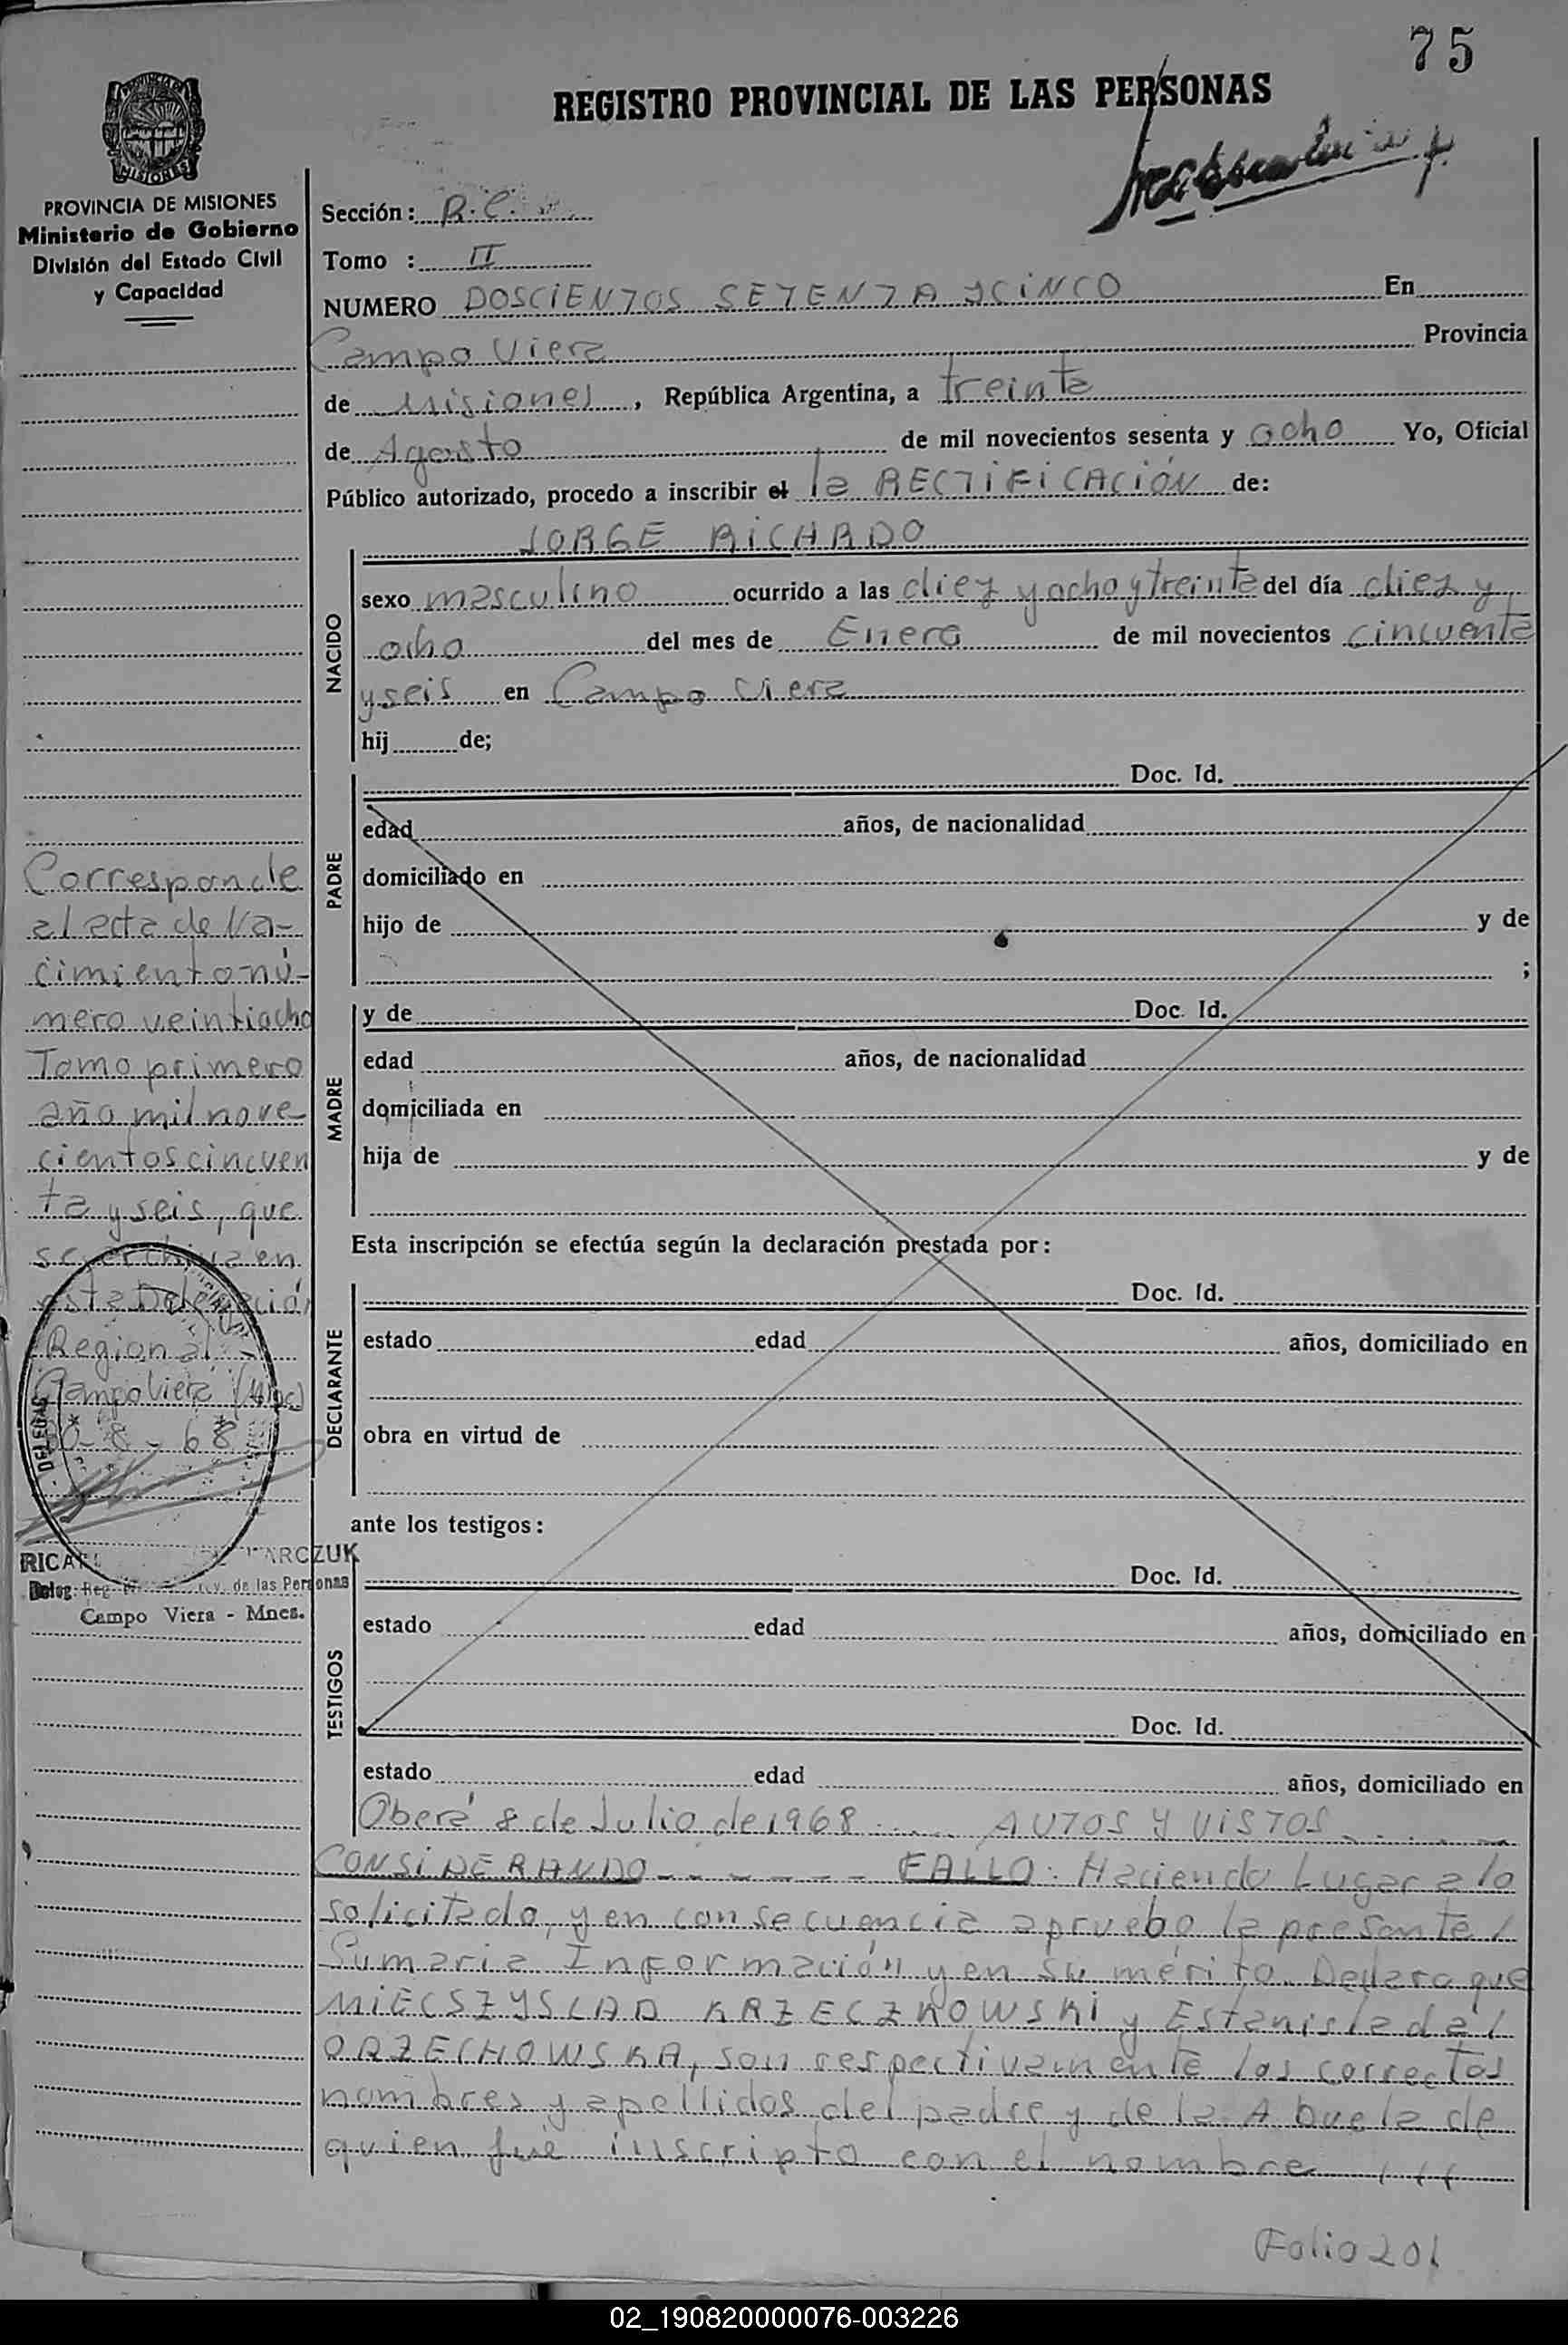 75
REGISTRO PROVINCIAL DE LAS PERSONAS
PROVINCIA DE MISIONES
Ministerio de Gobierno
División del Estado Civil
y Capacidad
Sección: R.C.
Tomo : II
NUMERO DOSCIENTOS SETENTA Y CINCO En
Campo Viera Provincia
de Misiones, República Argentina, a treinta
de Agosto de mil novecientos sesenta y ocho Yo, Oficial
Público autorizado, procedo a inscribir el la RECTIFICACIÓN de:
JORGE RICARDO
NACIDO
sexo masculino ocurrido a las diez y ocho y treinta del día diez y
ocho del mes de Enero de mil novecientos cincuenta
y seis en Campo Viera
hij de;
PADRE
Doc. Id.
edad años, de nacionalidad
domiciliado en
hijo de y de
;
MADRE
y de Doc. Id.
edad años, de nacionalidad
domiciliada en
hija de y de
Esta inscripción se efectúa según la declaración prestada por:
DECLARANTE
Doc. Id.
estado edad años, domiciliado en
obra en virtud de
ante los testigos:
TESTIGOS
Doc. Id.
estado edad años, domiciliado en
Doc. Id.
estado edad años, domiciliado en
Oberá 8 de Julio de 1968 ..... AUTOS Y VISTOS .....
CONSIDERANDO - - - - - - FALLO: Haciendo Lugar a lo
solicitado, y en consecuencia apruebo la presente /
Sumaria Información y en su mérito Declaro que
MIECSZYSLAD KRZECZKOWSKI y Estanislada /
ORZECHOWSKA, son respectivamente los correctos
nombres y apellidos del padre y de la Abuela de
quien fué inscripto con el nombre ///
Corresponde
al acta de Na-
cimiento nú-
mero veintiocho
Tomo primero
año mil nove
cientos cincuen
ta y seis, que
se archiva en
esta Delegación
Regional
Campo Viera (Mnes)
30-8-68
DELEGAC
RICAR ARCZUK
Deleg. Reg. de las Personas
Campo Viera - Mnes.
Folio 201
02_190820000076-003226